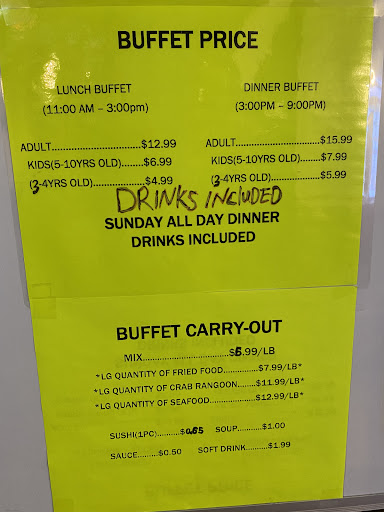 BUFFET PRICE
LUNCH BUFFET
(11:00 AM – 3:00pm)
ADULT..............................$12.99
KIDS(5-10YRS OLD).......$6.99
(3-4YRS OLD)..................$4.99
DINNER BUFFET
(3:00PM – 9:00PM)
ADULT.............................$15.99
KIDS(5-10YRS OLD).......$7.99
(3-4YRS OLD)..................$5.99
DRINKS INCLUDED
SUNDAY ALL DAY DINNER
DRINKS INCLUDED
BUFFET CARRY-OUT
MIX..............................$6.99/LB
*LG QUANTITY OF FRIED FOOD............$7.99/LB*
*LG QUANTITY OF CRAB RANGOON......$11.99/LB*
*LG QUANTITY OF SEAFOOD...............$12.99/LB*
SUSHI(1PC).........$0.65 SOUP.........$1.00
SAUCE.......$0.50 SOFT DRINK.........$1.99